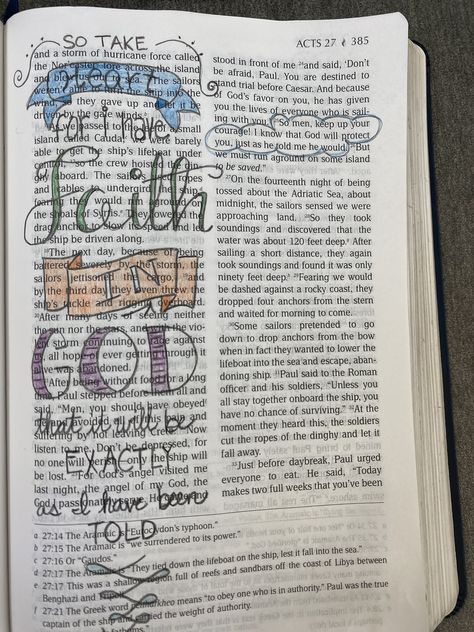 SO TAKE
HEART
for I have
faith
IN
GOD
that it will be
EXACTLY
as I have been
TOLD
ACTS 27 385
and a storm of hurricane force called
the Nor'easter tore across the island
and blew us out to sea. The sailors
weren't able to turn the ship into the
wind, so they gave up and let it be
driven by the gale winds.
As we passed to the lee of a small
island called Cauda, we were barely
able to get the ship's lifeboat under
control, so the crew hoisted the
dinghy aboard. The sailors used ropes
and cables to undergird the ship,
the ship be driven along.
The next day, because of being
battered severely by the storm, the
sailors jettisoned the cargo, and
by the third day they even threw the
ship's tackle and rigging overboard.
After many days of seeing neither
the sun nor the stars, and with the
all hope of ever getting through it
alive was abandoned.
After being without food for a long
time, Paul stepped before them all and
said, "Men, you should have obeyed
suffering by not leaving Crete. Now
listen to me. Don't be depressed, for
no one will perish—only the ship will
be lost. For God's angel visited me
last night, the angel of my God, the
God I passionately serve. He came and
stood in front of me and said, 'Don't
be afraid, Paul. You are destined to
stand trial before Caesar. And because
of God's favor on you, he has given
you the lives of everyone who is sail-
ing with you.' So men, keep up your
courage! I know that God will protect
you, just as he told me he would. But
we must run aground on some island
to be saved."
On the fourteenth night of being
tossed about the Adriatic Sea, about
midnight, the sailors sensed we were
approaching land. So they took
soundings and discovered that the
water was about 120 feet deep. After
sailing a short distance, they again
took soundings and found it was only
ninety feet deep. Fearing we would
be dashed against a rocky coast, they
dropped four anchors from the stern
and waited for morning to come.
Some sailors pretended to go
down to drop anchors from the bow
when in fact they wanted to lower the
lifeboat into the sea and escape, aban-
doning ship. Paul said to the Roman
officer and his soldiers, "Unless you
all stay together onboard the ship, you
have no chance of surviving." At the
moment they heard this, the soldiers
cut the ropes of the dinghy and let it
fall away.
Just before daybreak, Paul urged
everyone to eat. He said, "Today
makes two full weeks that you've been
a 27:14 The Aramaic is "Euroclydon's typhoon."
b 27:15 The Aramaic is "we surrendered to its power."
c 27:16 Or "Gaudos."
d 27:17 The Aramaic is "They tied down the lifeboat on the ship, lest it fall into the sea."
e 27:17 This was a shallow region full of reefs and sandbars off the coast of Libya between
Benghazi and Tripoli.
f 27:21 The Greek word peitharkheo means "to obey one who is in authority." Paul was the true
captain of the ship and carried the weight of authority.